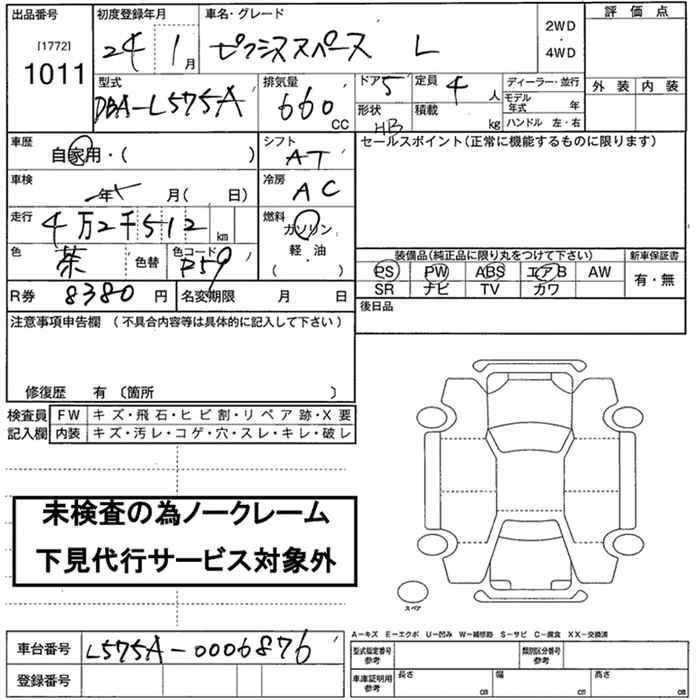 出品番号
[1772]
1011
初度登録年月
24年 1月
車名・グレード
ピクシススペース L
2WD
・
4WD
評価点
外装 内装
型式
DBA-L575A
排気量
660 CC
ドア 5
形状 HB
定員 4 人
積載 kg
ディーラー・並行
モデル年式 年
ハンドル 左・右
車歴
自家用・( )
シフト
AT
セールスポイント(正常に機能するものに限ります)
車検
年 月( 日)
冷房
AC
走行
4万2千512 km
燃料
ガソリン
軽・油
( ・ )
色
茶
色替
色コード
R59
装備品(純正品に限り丸をつけて下さい)
新車保証書
PS PW ABS エアB AW
有・無
SR ナビ TV カワ
R券 8380 円
名変期限 月 日
後日品
注意事項申告欄 (不具合内容等は具体的に記入して下さい)
修復歴 有 〔箇所 〕
検査員記入欄
FW キズ・飛石・ヒビ割・リペア跡・X要
内装 キズ・汚レ・コゲ・穴・スレ・キレ・破レ
未検査の為ノークレーム
下見代行サービス対象外
スペア
車台番号 L575A-0006876
登録番号
A-キズ E-エクボ U-凹み W-補修跡 S-サビ C-腐食 XX-交換済
型式指定番号参考
類別区分番号参考
車庫証明用参考
長さ cm 幅 cm 高さ cm